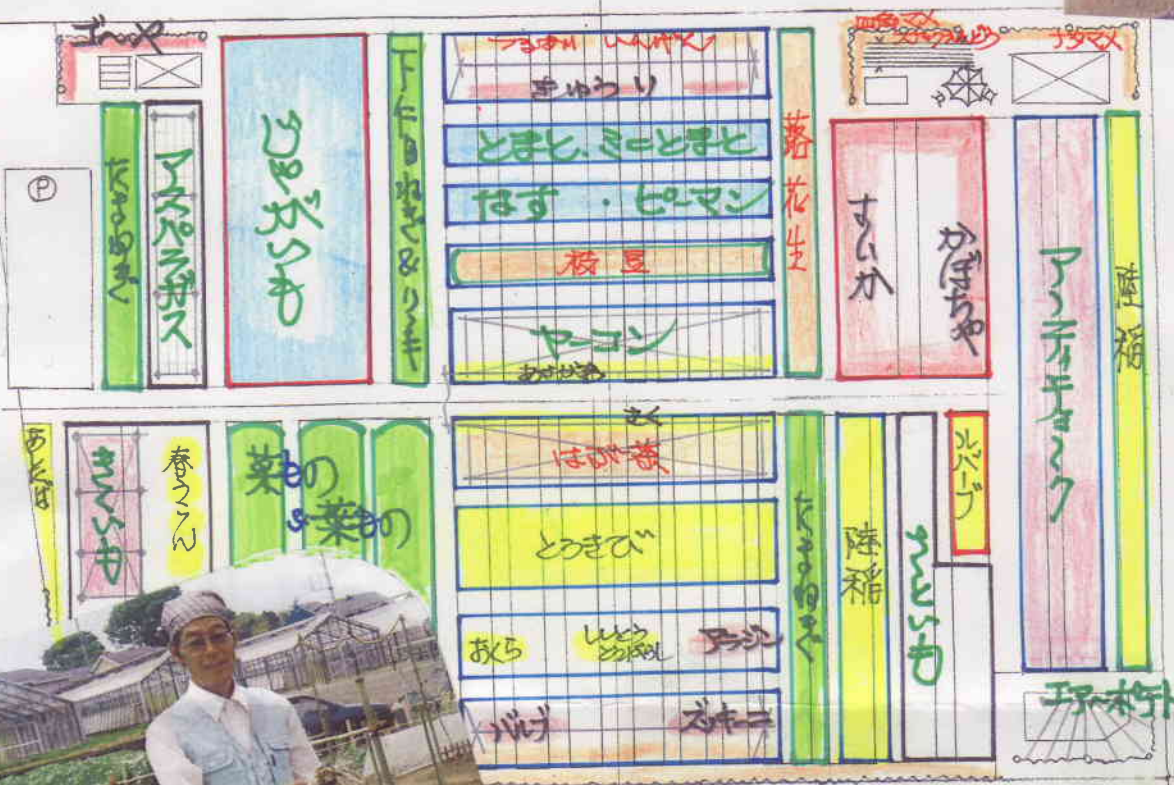 ゴーヤ
P
たまねぎ
アスパラガス
じゃがいも
下仁田ねぎ&リーキ
つるあり いんげん
きゅうり
とまと、ミニとまと
なす ・ ピーマン
枝豆
ヤーコン
落花生
四角マメ
ナタマメ
すいか
かぼちゃ
アーティチョーク
陸稲
きくいも
春うこん
葉もの
&葉もの
はぶ茶
とうきび
おくら
ししとう
とうがらし
バルブ
ズッキーニ
たまねぎ
陸稲
さといも
ルバーブ
エアーポテト